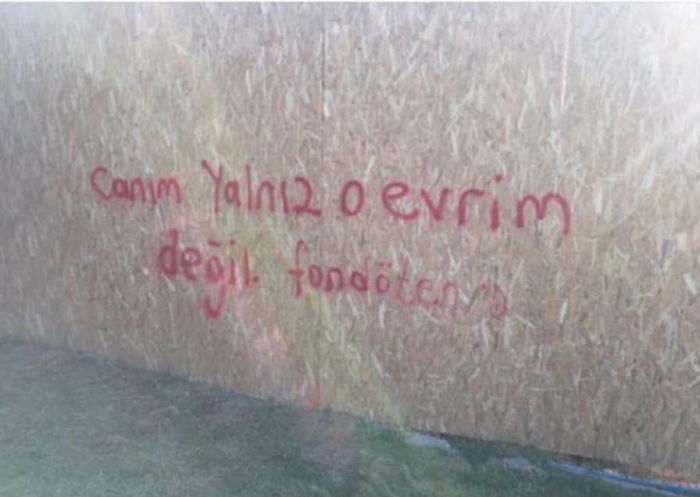 canım Yalnız o evrim
değil. fondöten